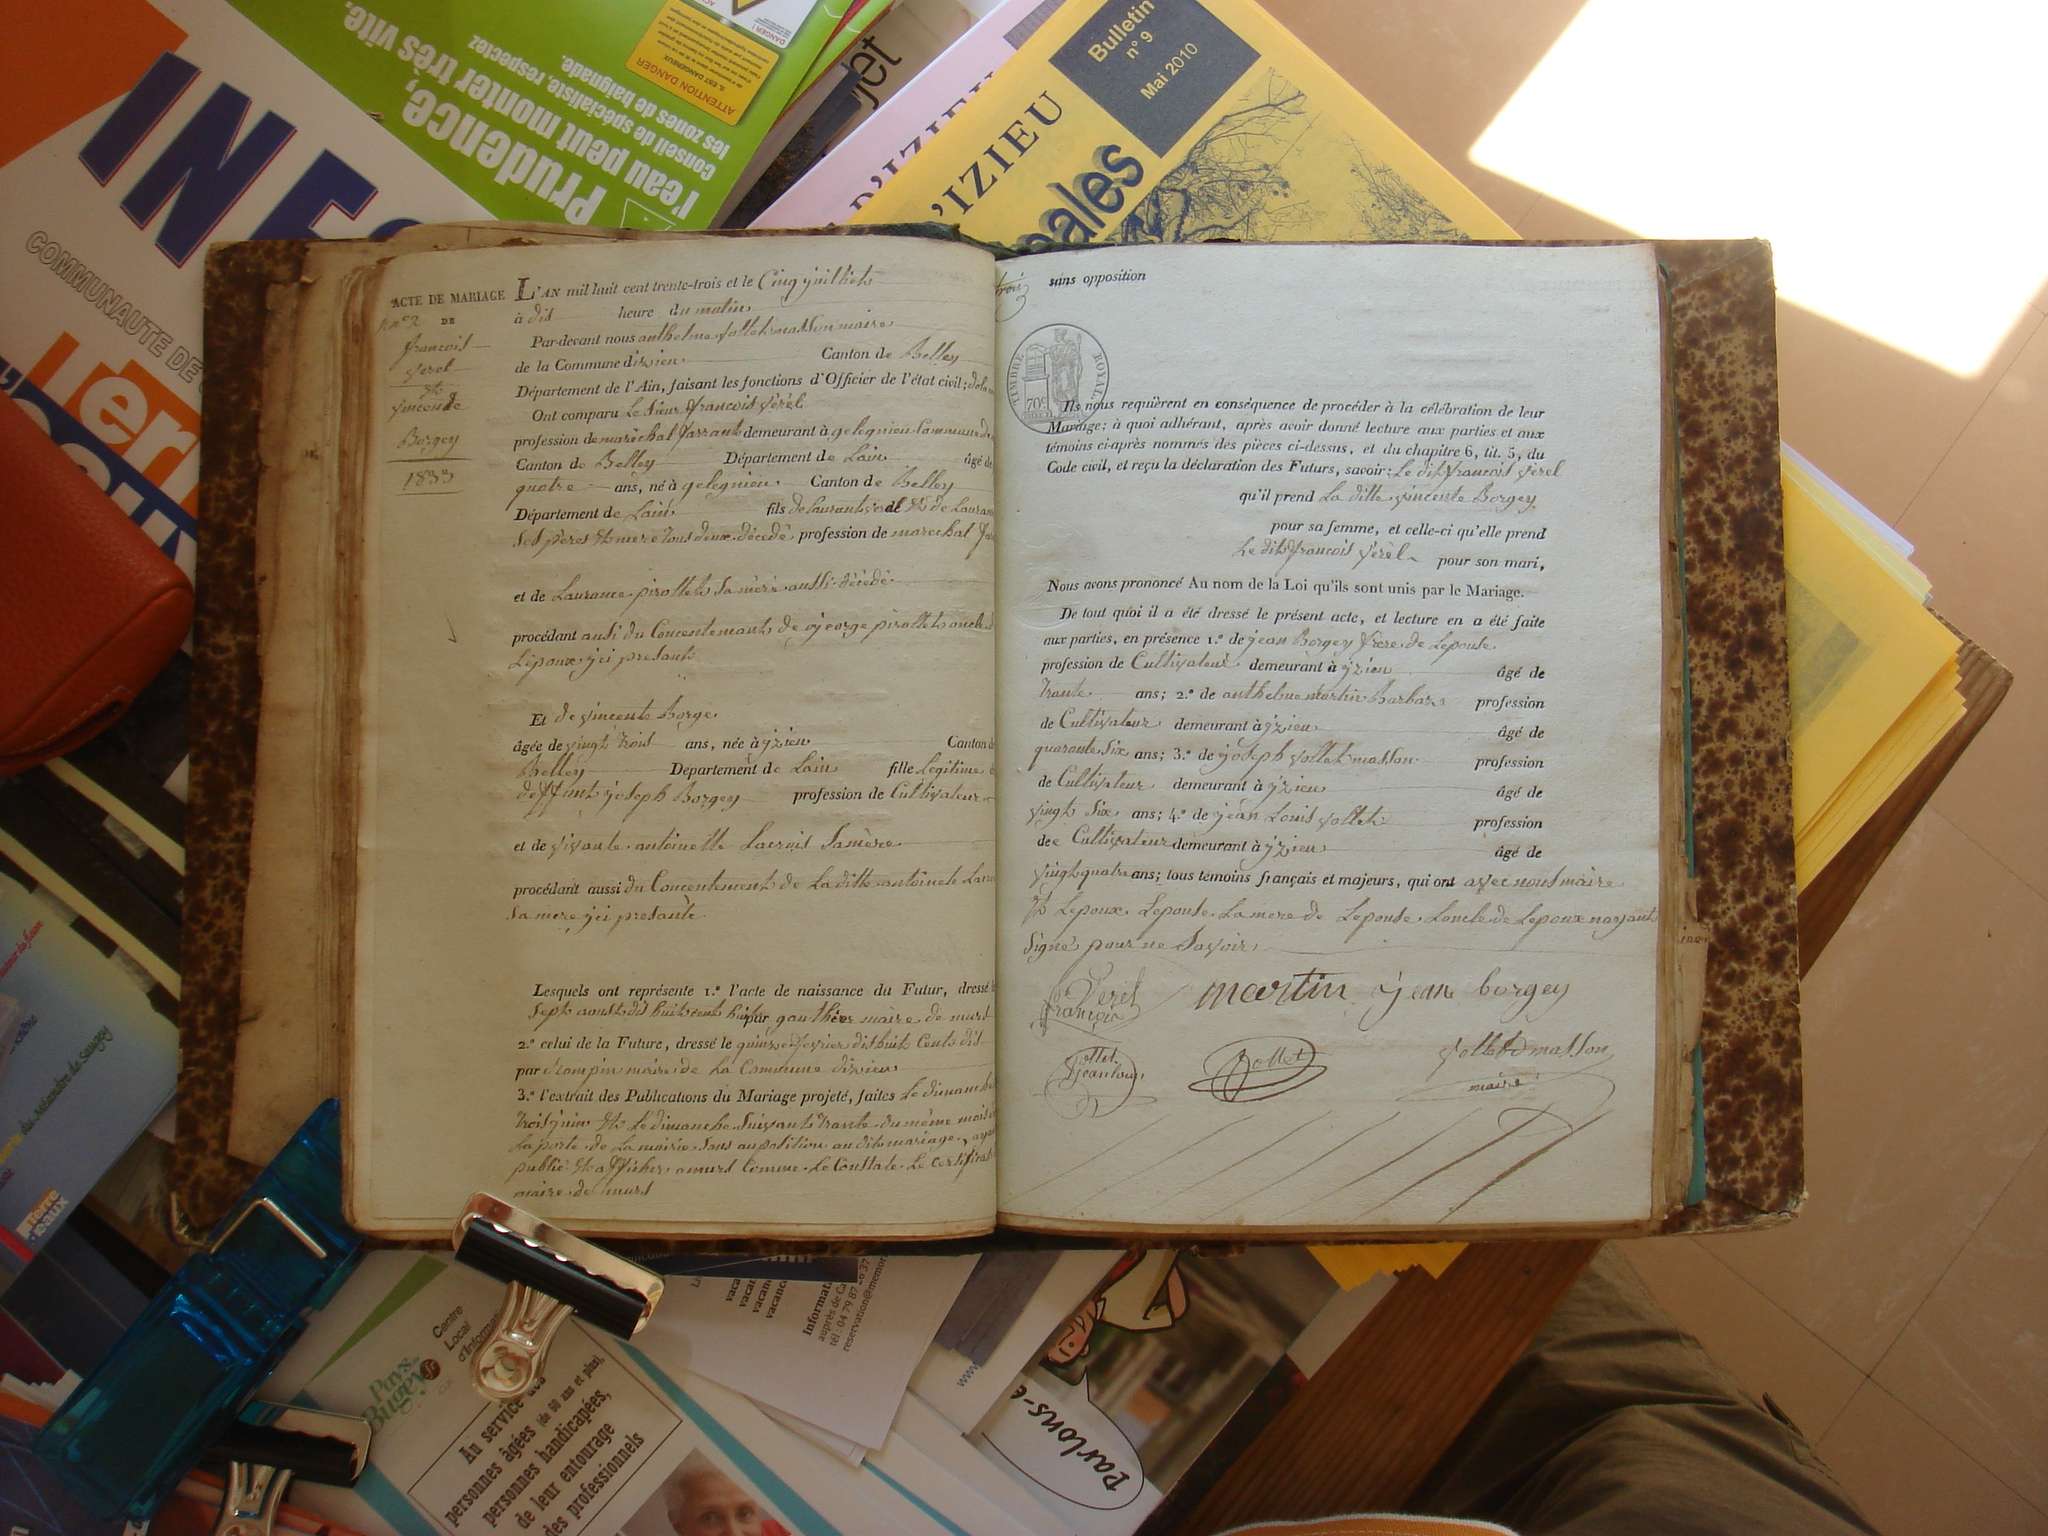 INFO
COMMUNAUTÉ DE
Prudence,
l'eau peut monter très vite.
conseil de spécialiste, respectez
les zones de baignade.
ATTENTION DANGER
DANGER!
D'IZIEU
D'IZIEU
pales
Bulletin
n° 9
Mai 2010
ACTE DE MARIAGE
DE
francois
verel
et
vincente
Borgey
1833
L'AN mil huit cent trente-trois et le Cinq juilliets
à dis heure du matin
Par-devant nous anthelme vollet masson maire
de la Commune dizieu Canton de Belley
Département de l'Ain, faisant les fonctions d'Officier de l'état civil;
Ont comparu Le Sieur francois vérel
profession de maréchal farrant demeurant à gelegnieu Commune de
Canton de Belley Département de Lain âgé de
quatre ans, né à gelegnieu Canton de Belley
Département de Lain fils de laurant verel et de Lauran
Ses pères et mere tous deux décédé profession de marechal far
et de Laurance pirollet Sa mère aussi décédé
procédant ausi du Concentement de george pirollet oncle d
Lépoux yci présant
Et de vincente Borge
âgée de vingt trois ans, née à yzieu Canton de
Belley Département de Lain fille Légitime d
deffunt joseph Borgey profession de Cultivateur
et de vivante antoinette Lacrois Samère
procédant aussi du Concentement de La ditte antoinete Lacro
Sa mere yci presante
Lesquels ont représenté 1.º l'acte de naissance du Futur, dressé le
Sept aoust dis huit cent huit par gauthier maire de murs
2.º celui de la Future, dressé le quinze fevrier dishuit Cents dis
par maire de La Commune dizieu
3.º l'extrait des Publications du Mariage projeté, faites Le dimanche
trois juin et Le dimanche Suivant trante du même mois
La porte de La mairie Sans auposition audit mariage, aya
publié et afficher a murs Comme Le Constate Le certificat
maire de murs
trois
sans opposition
TIMBRE ROYAL
70c
Ils nous requièrent en conséquence de procéder à la célébration de leur
Mariage; à quoi adhérant, après avoir donné lecture aux parties et aux
témoins ci-après nommés des pièces ci-dessus, et du chapitre 6, tit. 5, du
Code civil, et reçu la déclaration des Futurs, savoir: Le dit francois verel
qu'il prend La ditte vincente Borgey
pour sa femme, et celle-ci qu'elle prend
Le dit francois vérel pour son mari,
Nous avons prononcé Au nom de la Loi qu'ils sont unis par le Mariage.
De tout quoi il a été dressé le présent acte, et lecture en a été faite
aux parties, en présence 1.º de jean Borgey frère de Lepouse
profession de Cultivateur demeurant à yzieu âgé de
trante ans; 2.º de anthelme martin Barbar profession
de Cultivateur demeurant à yzieu âgé de
quarante Six ans; 3.º de joseph vollet masson profession
de Cultivateur demeurant à yzieu âgé de
vingt Six ans; 4.º de jean Louis vollet profession
de Cultivateur demeurant à yzieu âgé de
vingt quatre ans; tous témoins français et majeurs, qui ont avec nous maire
et Lepoux, Lepouse, La mere de Lepouse, Loncle de Lepoux nayant
Signé pour ne Savoir.
Verel
françois
martin
jean borgey
vollet
jeanlouis
Vollet
vollet masson
maire
terre
d'eaux
Pays
Bugey
Centre
Local
d'Informati
Au service des
personnes âgées (de 60 ans et plus),
personnes handicapées,
de leur entourage
des professionnels
vaca
vacan
vacanc
Informat
auprès de Ca
tél : 04 79 87
reservation@memor
www
Parlons-e